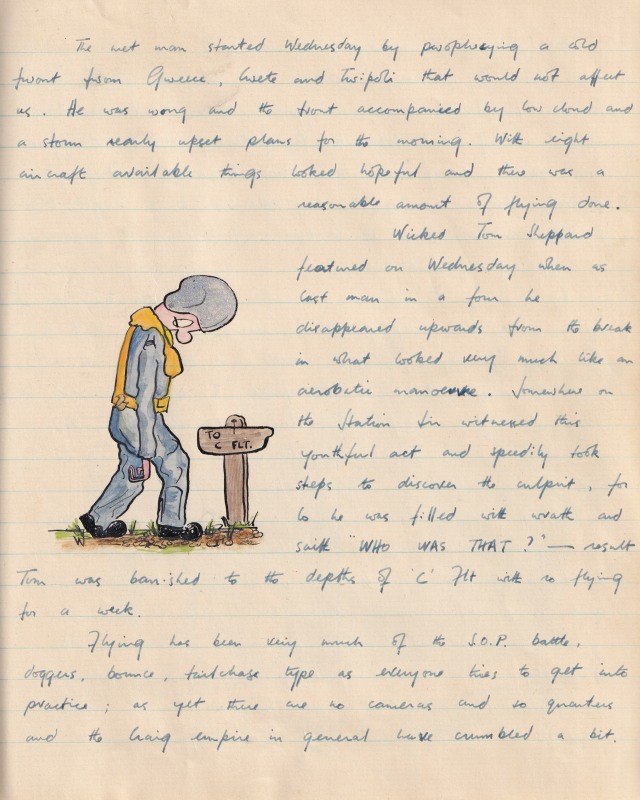 The met man started Wednesday by prophesying a cold
front from Greece, Crete and Tripoli that would not affect
us. He was wrong and the front accompanied by low cloud and
a storm nearly upset plans for the morning. With eight
aircraft available things looked hopeful and there was a
reasonable amount of flying done.
Wicked Tom Sheppard
featured on Wednesday when as
last man in a four he
disappeared upwards from the break
in what looked very much like an
aerobatic manoeuvre. Somewhere on
the Station Sir witnessed this
youthful act and speedily took
steps to discover the culprit, for
lo he was filled with wrath and
saith "WHO WAS THAT?" — result
TO
C FLT.
Tom was banished to the depths of 'C' Flt with no flying
for a week.
Flying has been very much of the S.O.P. battle,
doggers, bounce, tailchase type as everyone tries to get into
practice; as yet there are no cameras and so quarters
and the Craig empire in general have crumbled a bit.